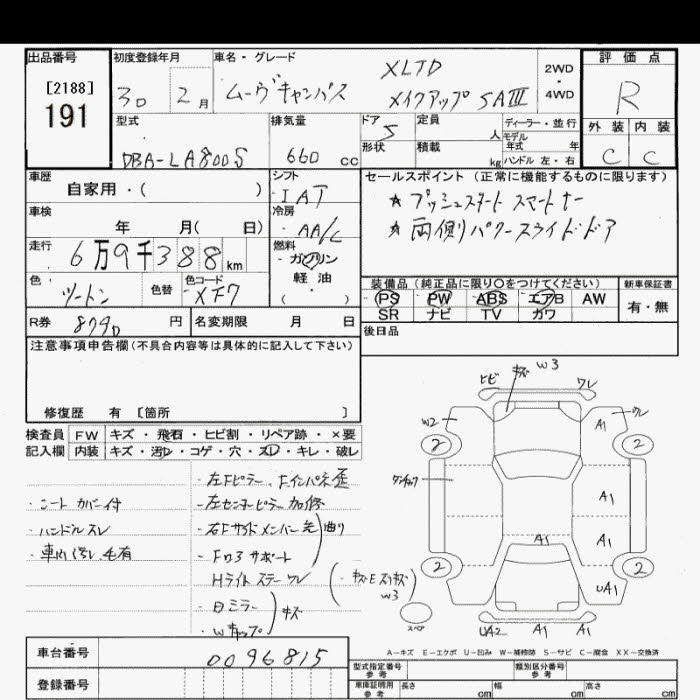 出品番号
[2188]
191
初度登録年月
30 2月
車名・グレード
ムーヴキャンバス
XLTD
メイクアップ SAIII
2WD
・
4WD
評価点
R
外装 内装
C C
型式
DBA-LA800S
排気量
660 cc
ドア
5
定員
人
形状
積載
kg
ディーラー・並行
モデル
年式 年
ハンドル 左・右
車歴
自家用・( )
シフト
IAT
車検
年 月( 日)
冷房
AA/C
走行
6万9千388km
燃料
ガソリン
軽油
( )
色
ツートン
色替
色コード
XF7
R券
8790 円
名変期限 月 日
セールスポイント(正常に機能するものに限ります)
★プッシュスタート スマートキー
★両側パワースライドドア
装備品(純正品に限り〇をつけてください)
PS PW ABS エアB AW
SR ナビ TV カワ
新車保証書
有・無
後日品
注意事項申告欄(不具合内容等は具体的に記入して下さい)
修復歴 有 [箇所 ]
検査員
記入欄
FW キズ・飛石・ヒビ割・リペア跡・×要
内装 キズ・汚れ・コゲ・穴・スレ・キレ・破レ
・シートカバー付
・ハンドルスレ
・車内汚レ 毛有
・左Fピラー、Fインパネ歪
・左センターピラー加修
・右Fサイドメンバー先 曲り
・Fロアサポート
Hライトステーワレ
・日ミラー
・Wキャップ
キズ
(・キズEスリキズ
W3
ヒビ
キズ W3
ワレ
W2
ワレ
A1
2
2
A1
A1
A1
2
2
UA1
UA2 A1 A1
スペア
A-キズ E-エクボ U-凹み W-補修跡 S-サビ C-腐食 XX-交換済
車台番号
0096815
登録番号
型式指定番号
参考
類別区分番号
参考
車庫証明用
参考
長さ cm
幅 cm
高さ cm